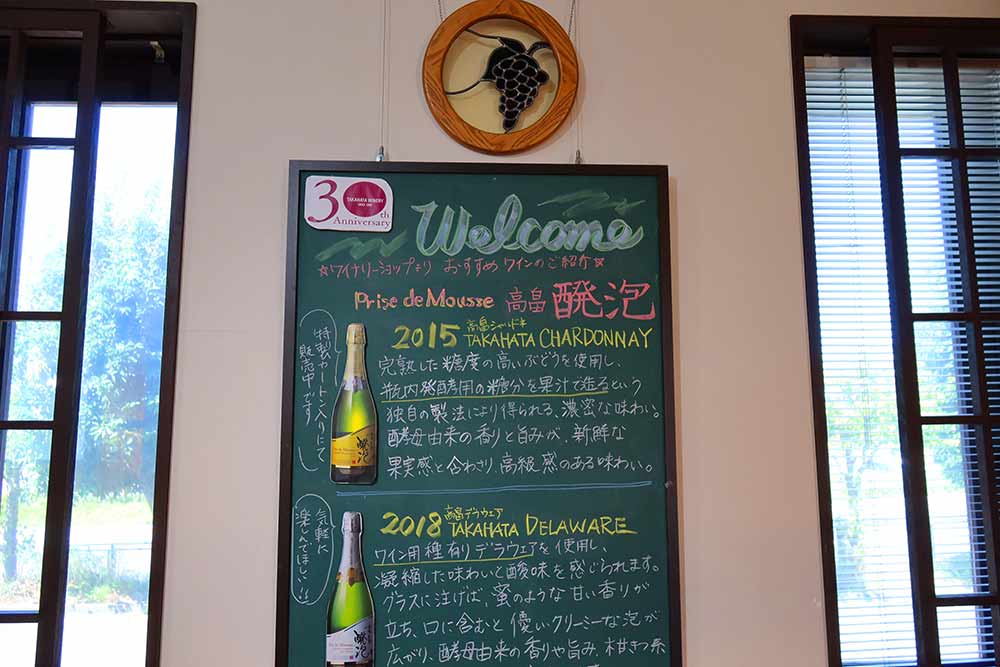 30th
TAKAHATA WINERY
Anniversary
Welcome
☆ワイナリーショップより おすすめ ワインのご紹介☆
Prise de Mousse 高畠 醗泡
2015 高畠シャルドネ
TAKAHATA CHARDONNAY
完熟した糖度の高いぶどうを使用し、
瓶内発酵用の糖分を果汁で造るという
独自の製法により得られる、濃密な味わい。
酵母由来の香りと旨みが、新鮮な
果実感と合わさり、高級感のある味わい。
特製カートン入りにて
販売中です!
醗泡
2018 高畠デラウェア
TAKAHATA DELAWARE
ワイン用種有りデラウェアを使用し、
凝縮した味わいと酸味を感じられます。
グラスに注げば、蜜のような甘い香りが
立ち、口に含むと優しいクリーミーな泡が
広がり、酵母由来の香りや旨み、柑きつ系
気軽に
楽しんでほしい!!
醗泡